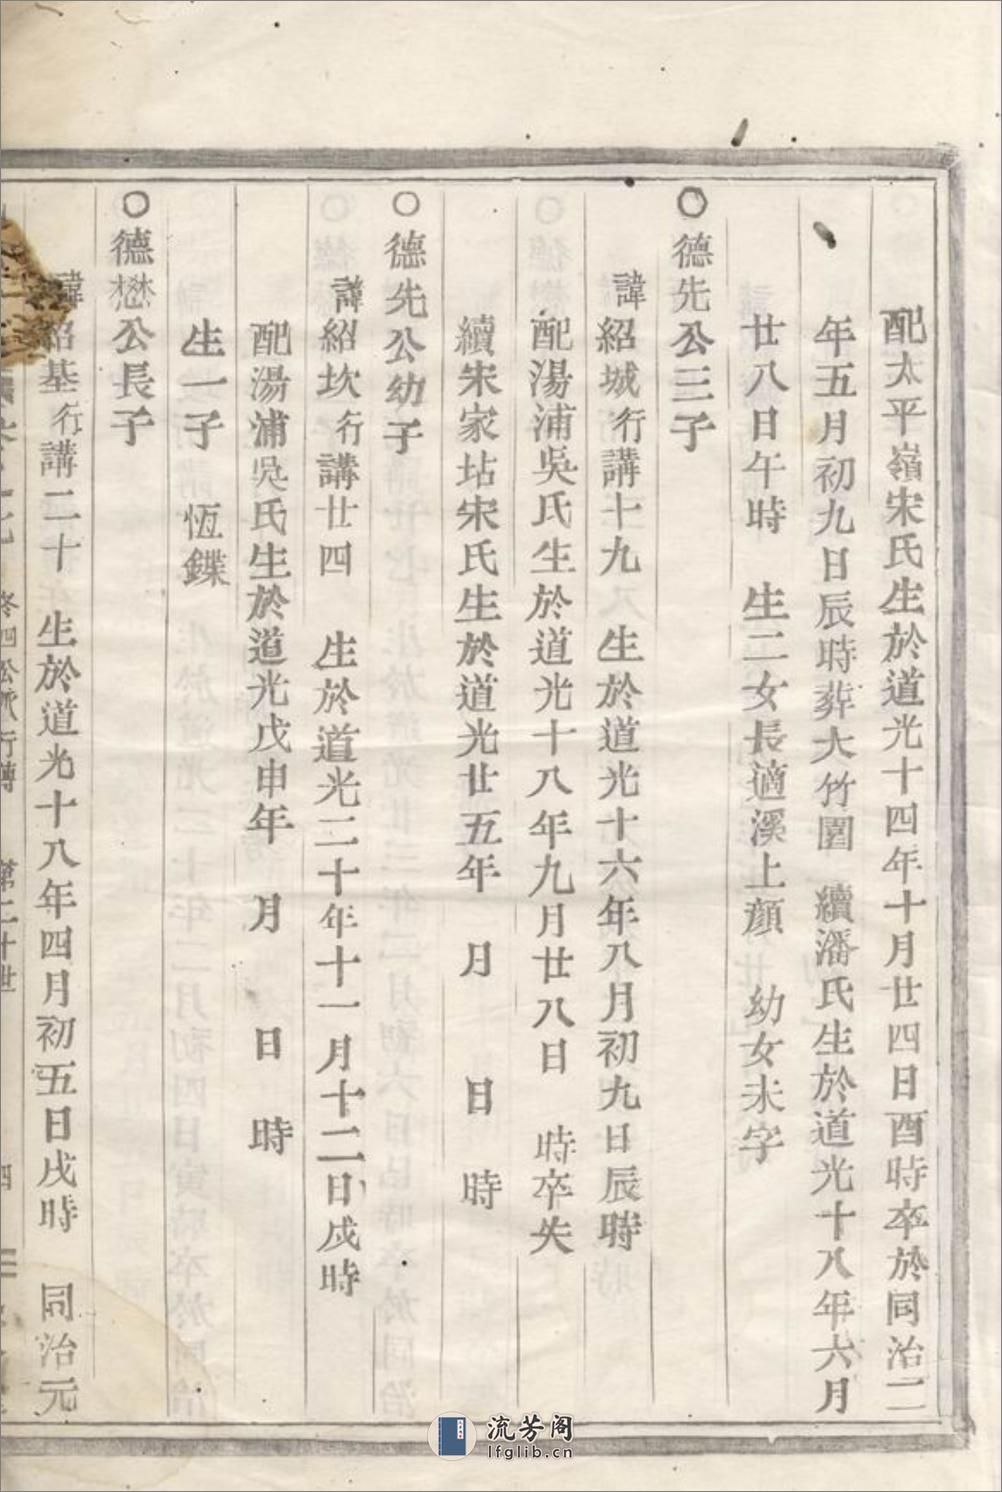 配太平嶺宋氏生於道光十四年十月廿四日酉時卒於同治二
年五月初九日辰時葬大竹園 續潘氏生於道光十八年六月
廿八日午時 生二女長適溪上顔 幼女未字
○德先公三子
諱紹城行講十九 生於道光十六年八月初九日辰時
配湯浦吳氏生於道光十八年九月廿八日 時卒失
續宋家坫宋氏生於道光廿五年 月 日 時
○德先公幼子
諱紹坎行講廿四 生於道光二十年十一月十二日戌時
配湯浦吳氏生於道光戊申年 月 日 時
生一子 恆鏶
○德懋公長子
諱紹基行講二十 生於道光十八年四月初五日戌時 同治元
行傳 第二十世 四
流芳阁
lfglib.cn